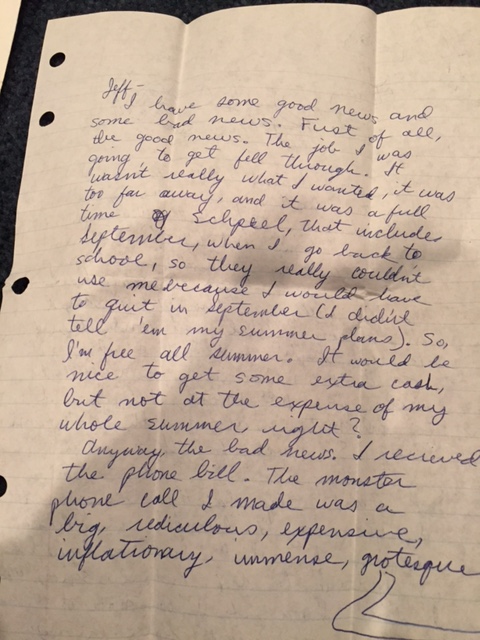 Jeff-
I have some good news and
some bad news. First of all,
the good news. The job I was
going to get fell through. It
wasn't really what I wanted, it was
too far away, and it was a full
time Schpeel, that includes
September, when I go back to
school, so they really couldn't
use me because I would have
to quit in September (I didn't
tell 'em my summer plans). So,
I'm free all summer. It would be
nice to get some extra cash,
but not at the expense of my
whole summer right?
Anyway, the bad news. I recieved
the phone bill. The monster
phone call I made was a
big, rediculous, expensive,
inflationary, immense, grotesque